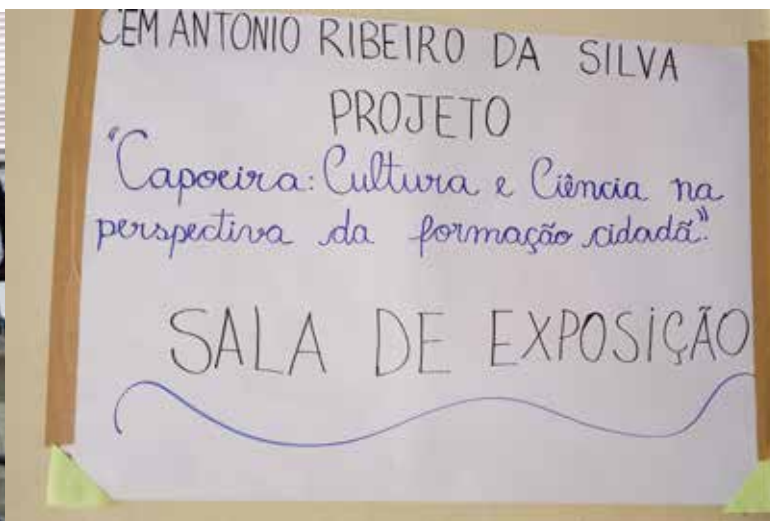 CEM ANTONIO RIBEIRO DA SILVA
PROJETO
"Capoeira: Cultura e Ciência na
perspectiva da formação cidadã".
SALA DE EXPOSIÇÃO